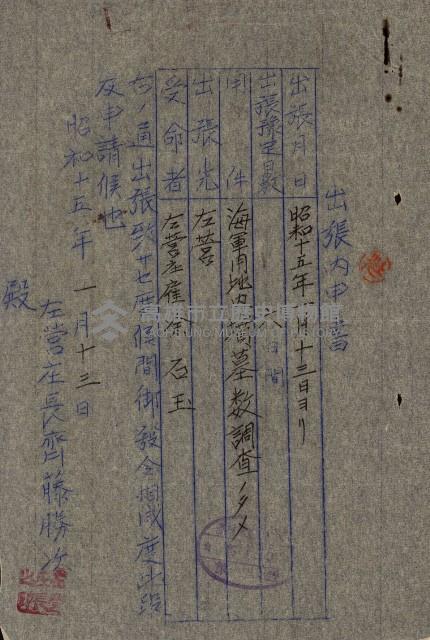 出張內申書
出張月日 昭和十五年一月十三日ヨリ
出張豫定日數 八日間
用件 海軍用地內墳墓數調查ノタメ
出張先 左營
受命者 左營庄雇 石玉
右ノ通出張致サセ度候間御發令相成度此段
及申請候也
昭和十五年 一月十三日
左營庄長齊藤勝次
殿
高雄市立歷史博物館
KAOHSIUNG MUSEUM OF HISTORY